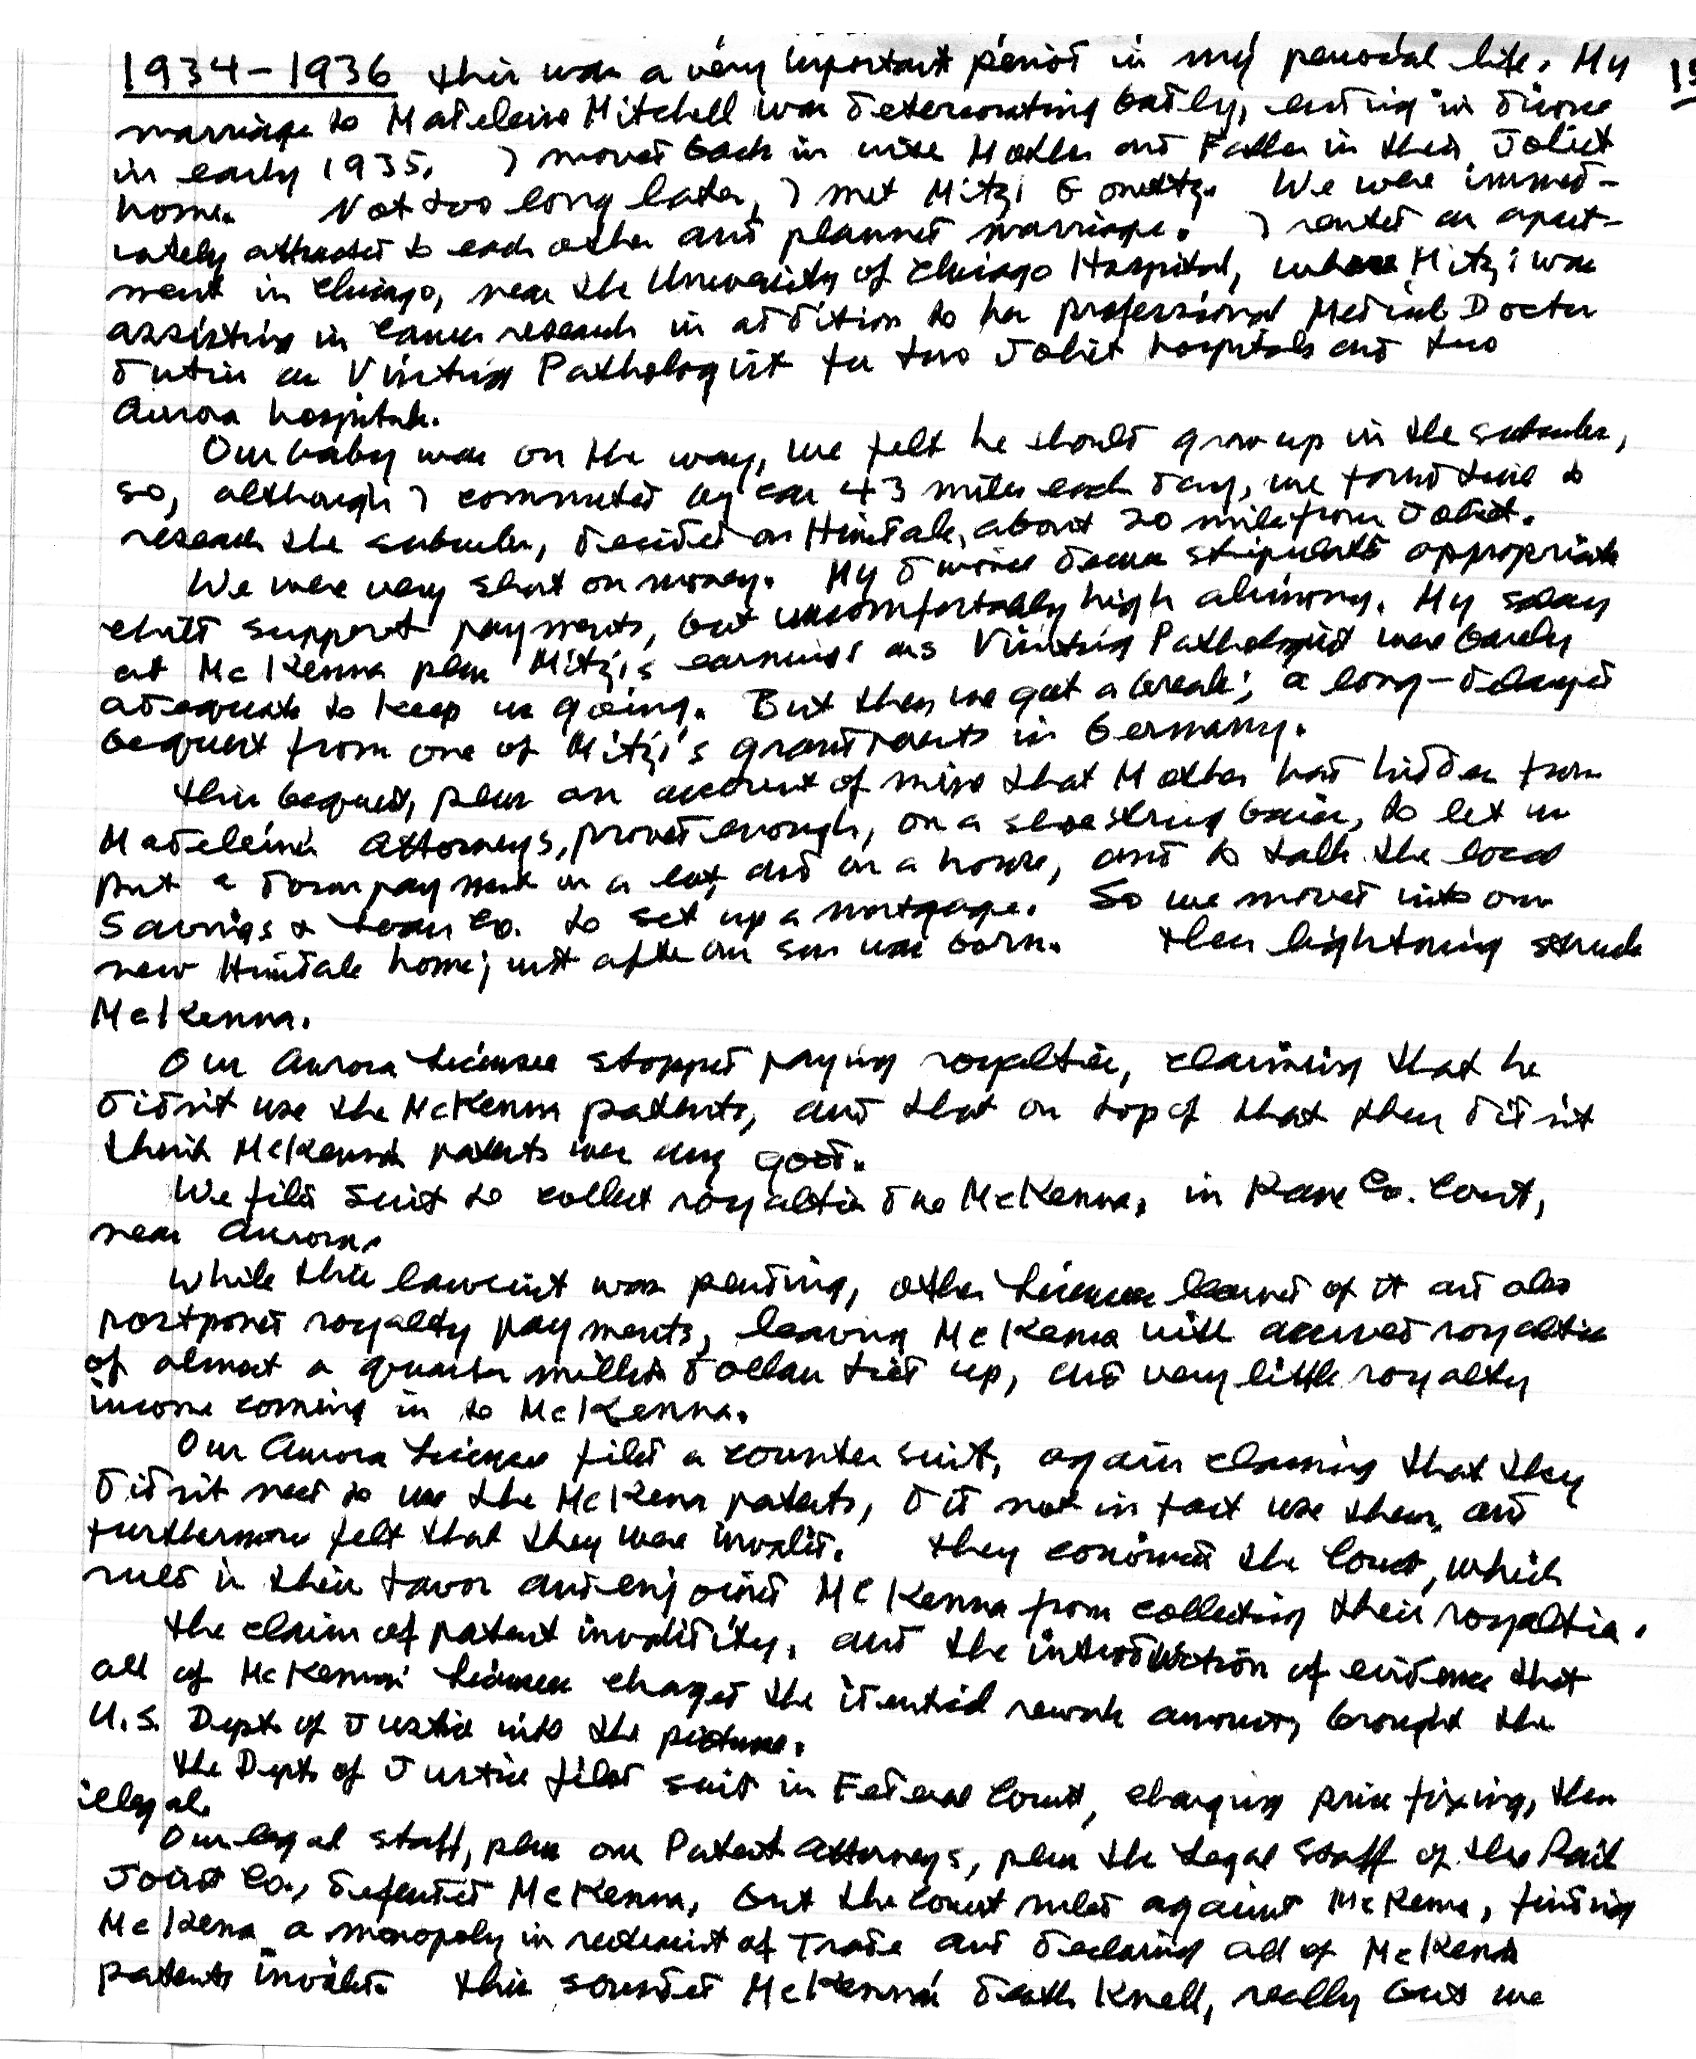 1934-1936 This was a very important period in my personal life. My 15
marriage to Madeleine Mitchell was deteriorating badly, ending in divorce
in early 1935. I moved back in with Mother and Father in their Joliet
home. Not too long later, I met Mitzi We were immed-
iately attracted to each other and planned marriage. I rented an apart-
ment in Chicago, near the University of Chicago Hospital, where Mitzi was
assisting in cancer research in addition to her professional Medical Doctor
duties as Visiting Pathologist for two Joliet hospitals and two
Aurora hospitals.
Our baby was on the way, we felt he should grow up in the suburbs,
so, although I commuted by car 43 miles each day, we found time to
research the suburbs, decided on Hinsdale, about 20 miles from Joliet.
We were very short on money. My divorce decree stipulated appropriate
child support payments, but uncomfortably high alimony. My salary
at McKenna plus Mitzi's earnings as Visiting Pathologist were barely
adequate to keep us going. But then we got a break; a long-delayed
bequest from one of Mitzi's grandparents in Germany.
This bequest, plus an account of mine that Mother had hidden from
Madeleine's attorneys, proved enough, on a shoestring basis, to let us
put a down payment on a lot and on a house, and to talk the local
Savings & Loan Co. to set up a mortgage. So we moved into our
new Hinsdale home, just after our son was born. Then lightning struck
McKenna.
Our Aurora Licensee stopped paying royalties, claiming that he
didn't use the McKenna patents, and that on top of that they didn't
think McKenna's patents were any good.
We filed suit to collect royalties due McKenna, in Kane Co. Court,
near Aurora.
While this lawsuit was pending, other Licensees learned of it and also
postponed royalty payments, leaving McKenna with accrued royalties
of almost a quarter million dollars tied up, and very little royalty
income coming in to McKenna.
Our Aurora Licensee filed a counter suit, again claiming that they
didn't need to use the McKenna patents, did not in fact use them, and
furthermore felt that they were invalid. They convinced the Court, which
ruled in their favor and enjoined McKenna from collecting their royalties.
The claim of patent invalidity, and the introduction of evidence that
all of McKenna's Licensees charged the identical rework amounts, brought the
U.S. Dept. of Justice into the picture.
The Dept. of Justice filed suit in Federal Court, charging price fixing, then
illegal.
Our legal staff, plus our Patent Attorneys, plus the Legal Staff of the Rail
Joint Co., defended McKenna, but the Court ruled against McKenna, finding
McKenna a monopoly in restraint of Trade and declaring all of McKenna
patents invalid. This sounded McKenna's death knell, really but we